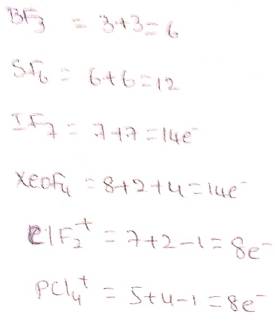 BF₃ = 3+3=6
SF₆ = 6+6=12
IF₇ = 7+7=14e⁻
XeOF₄ = 8+2+4=14e⁻
ClF₂⁺ = 7+2-1=8e⁻
PCl₄⁺ = 5+4-1=8e⁻